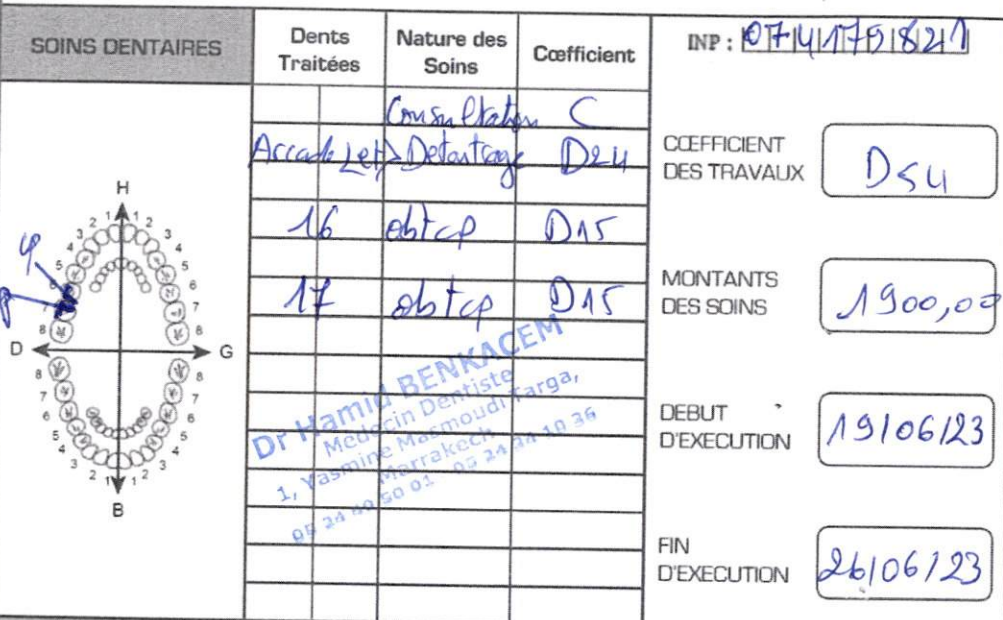 SOINS DENTAIRES
Dents Traitées
Nature des Soins
Cœfficient
Consultation C
Arcade Détartrage D24
16 obtcp D15
17 obtcp D15
H
D G
B
Dr Hamid BENKACEM
Médecin Dentiste
1, Yasmine Masmoudi Targa,
Marrakech
05 24 40 50 01 - 05 24 34 10 36
INP : 074179821
CŒFFICIENT
DES TRAVAUX
D54
MONTANTS
DES SOINS
1900,00
DEBUT
D'EXECUTION
19/06/23
FIN
D'EXECUTION
26/06/23